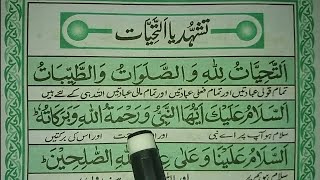 تشہد یا التحیات
اَلتَّحِيَّاتُ لِلّٰهِ وَالصَّلَوَاتُ وَالطَّيِّبَاتُ
تمام قولی عبادتیں اور تمام فعلی عبادتیں اور تمام مالی عبادتیں اللہ ہی کے لئے ہیں
اَلسَّلَامُ عَلَيْكَ اَيُّهَا النَّبِيُّ وَرَحْمَةُ اللّٰهِ وَبَرَكَاتُهٗ
سلام ہو آپ پر اے نبی اور اس کی برکتیں
اَلسَّلَامُ عَلَيْنَا وَعَلٰى الصّٰلِحِيْنَ